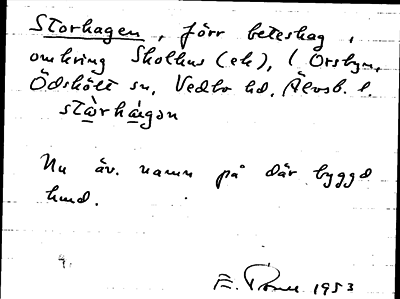 Storhagen, förr beteshag,
omkring Skolhus (ek), i Örsbyn,
Ödskölt sn, Vedbo hd, Älvsb. l.
stàrhágən
Nu äv. namn på där byggd
lund.
E. 1953